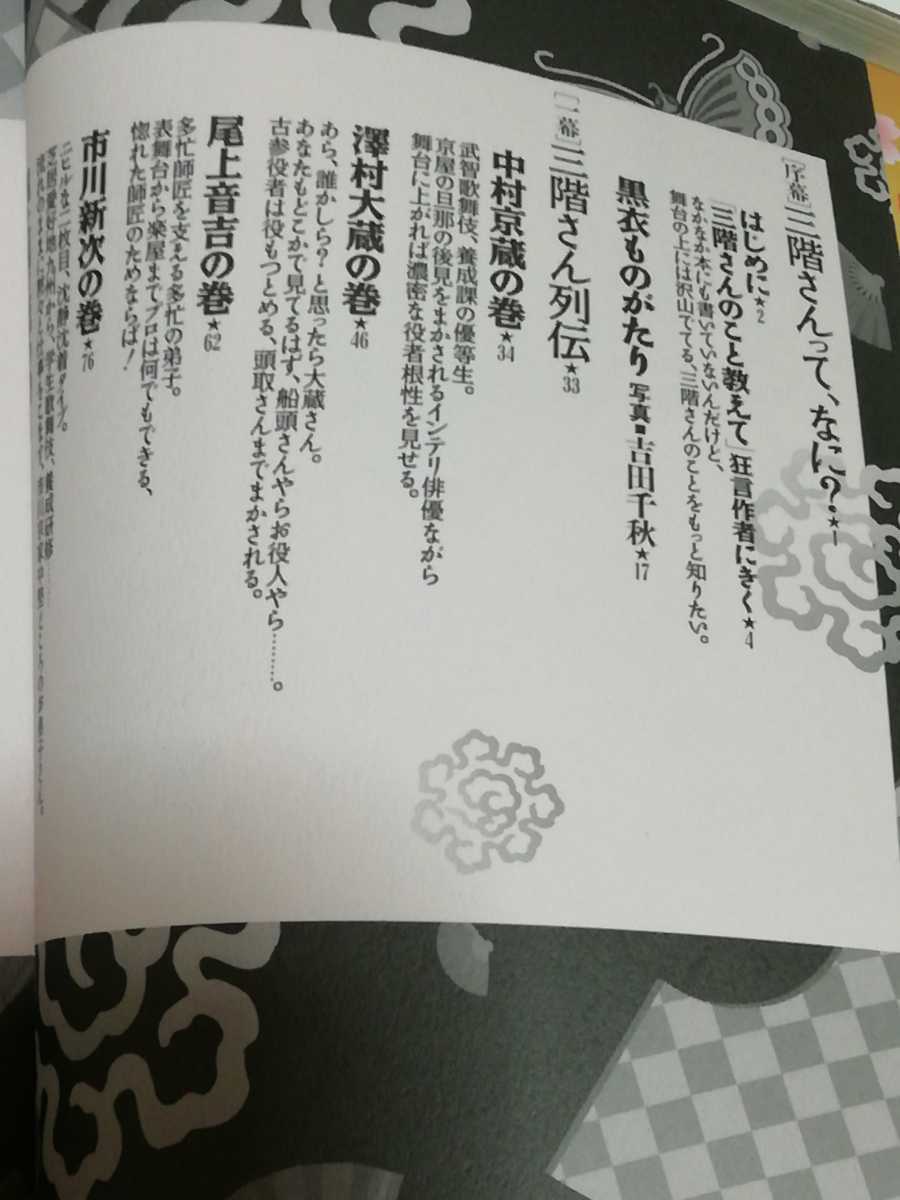 [序幕]三階さんって、なに?★1
はじめに★2
「三階さんのこと教えて」狂言作者にきく★4
なかなか本にも書いていないんだけど、
舞台の上には沢山でてる、三階さんのことをもっと知りたい。
黒衣ものがたり 写真■吉田千秋★17
[一幕]三階さん列伝★33
中村京蔵の巻★34
武智歌舞伎、養成課の優等生。
京屋の旦那の後見をまかされるインテリ俳優ながら
舞台に上がれば濃密な役者根性を見せる。
澤村大蔵の巻★46
あら、誰かしら?と思ったら大蔵さん。
あなたもどこかで見てるはず、船頭さんやらお役人やら………。
古参役者は役もつとめる、頭取さんまでまかされる。
尾上音吉の巻★62
多忙師匠を支える多忙の弟子。
表舞台から楽屋までプロは何でもできる、
惚れた師匠のためならば!
市川新次の巻★76
ニヒルな二枚目、沈静沈着タイプ。
芝居愛好地九州から、学生歌舞伎、養成研修……